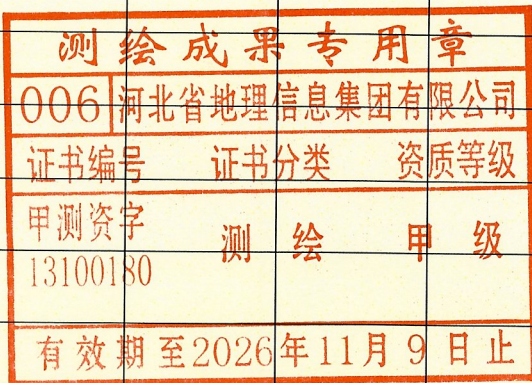 测绘成果专用章
006 河北省地理信息集团有限公司
证书编号 证书分类 资质等级
甲测资字
13100180 测绘 甲级
有效期至2026年11月9日止